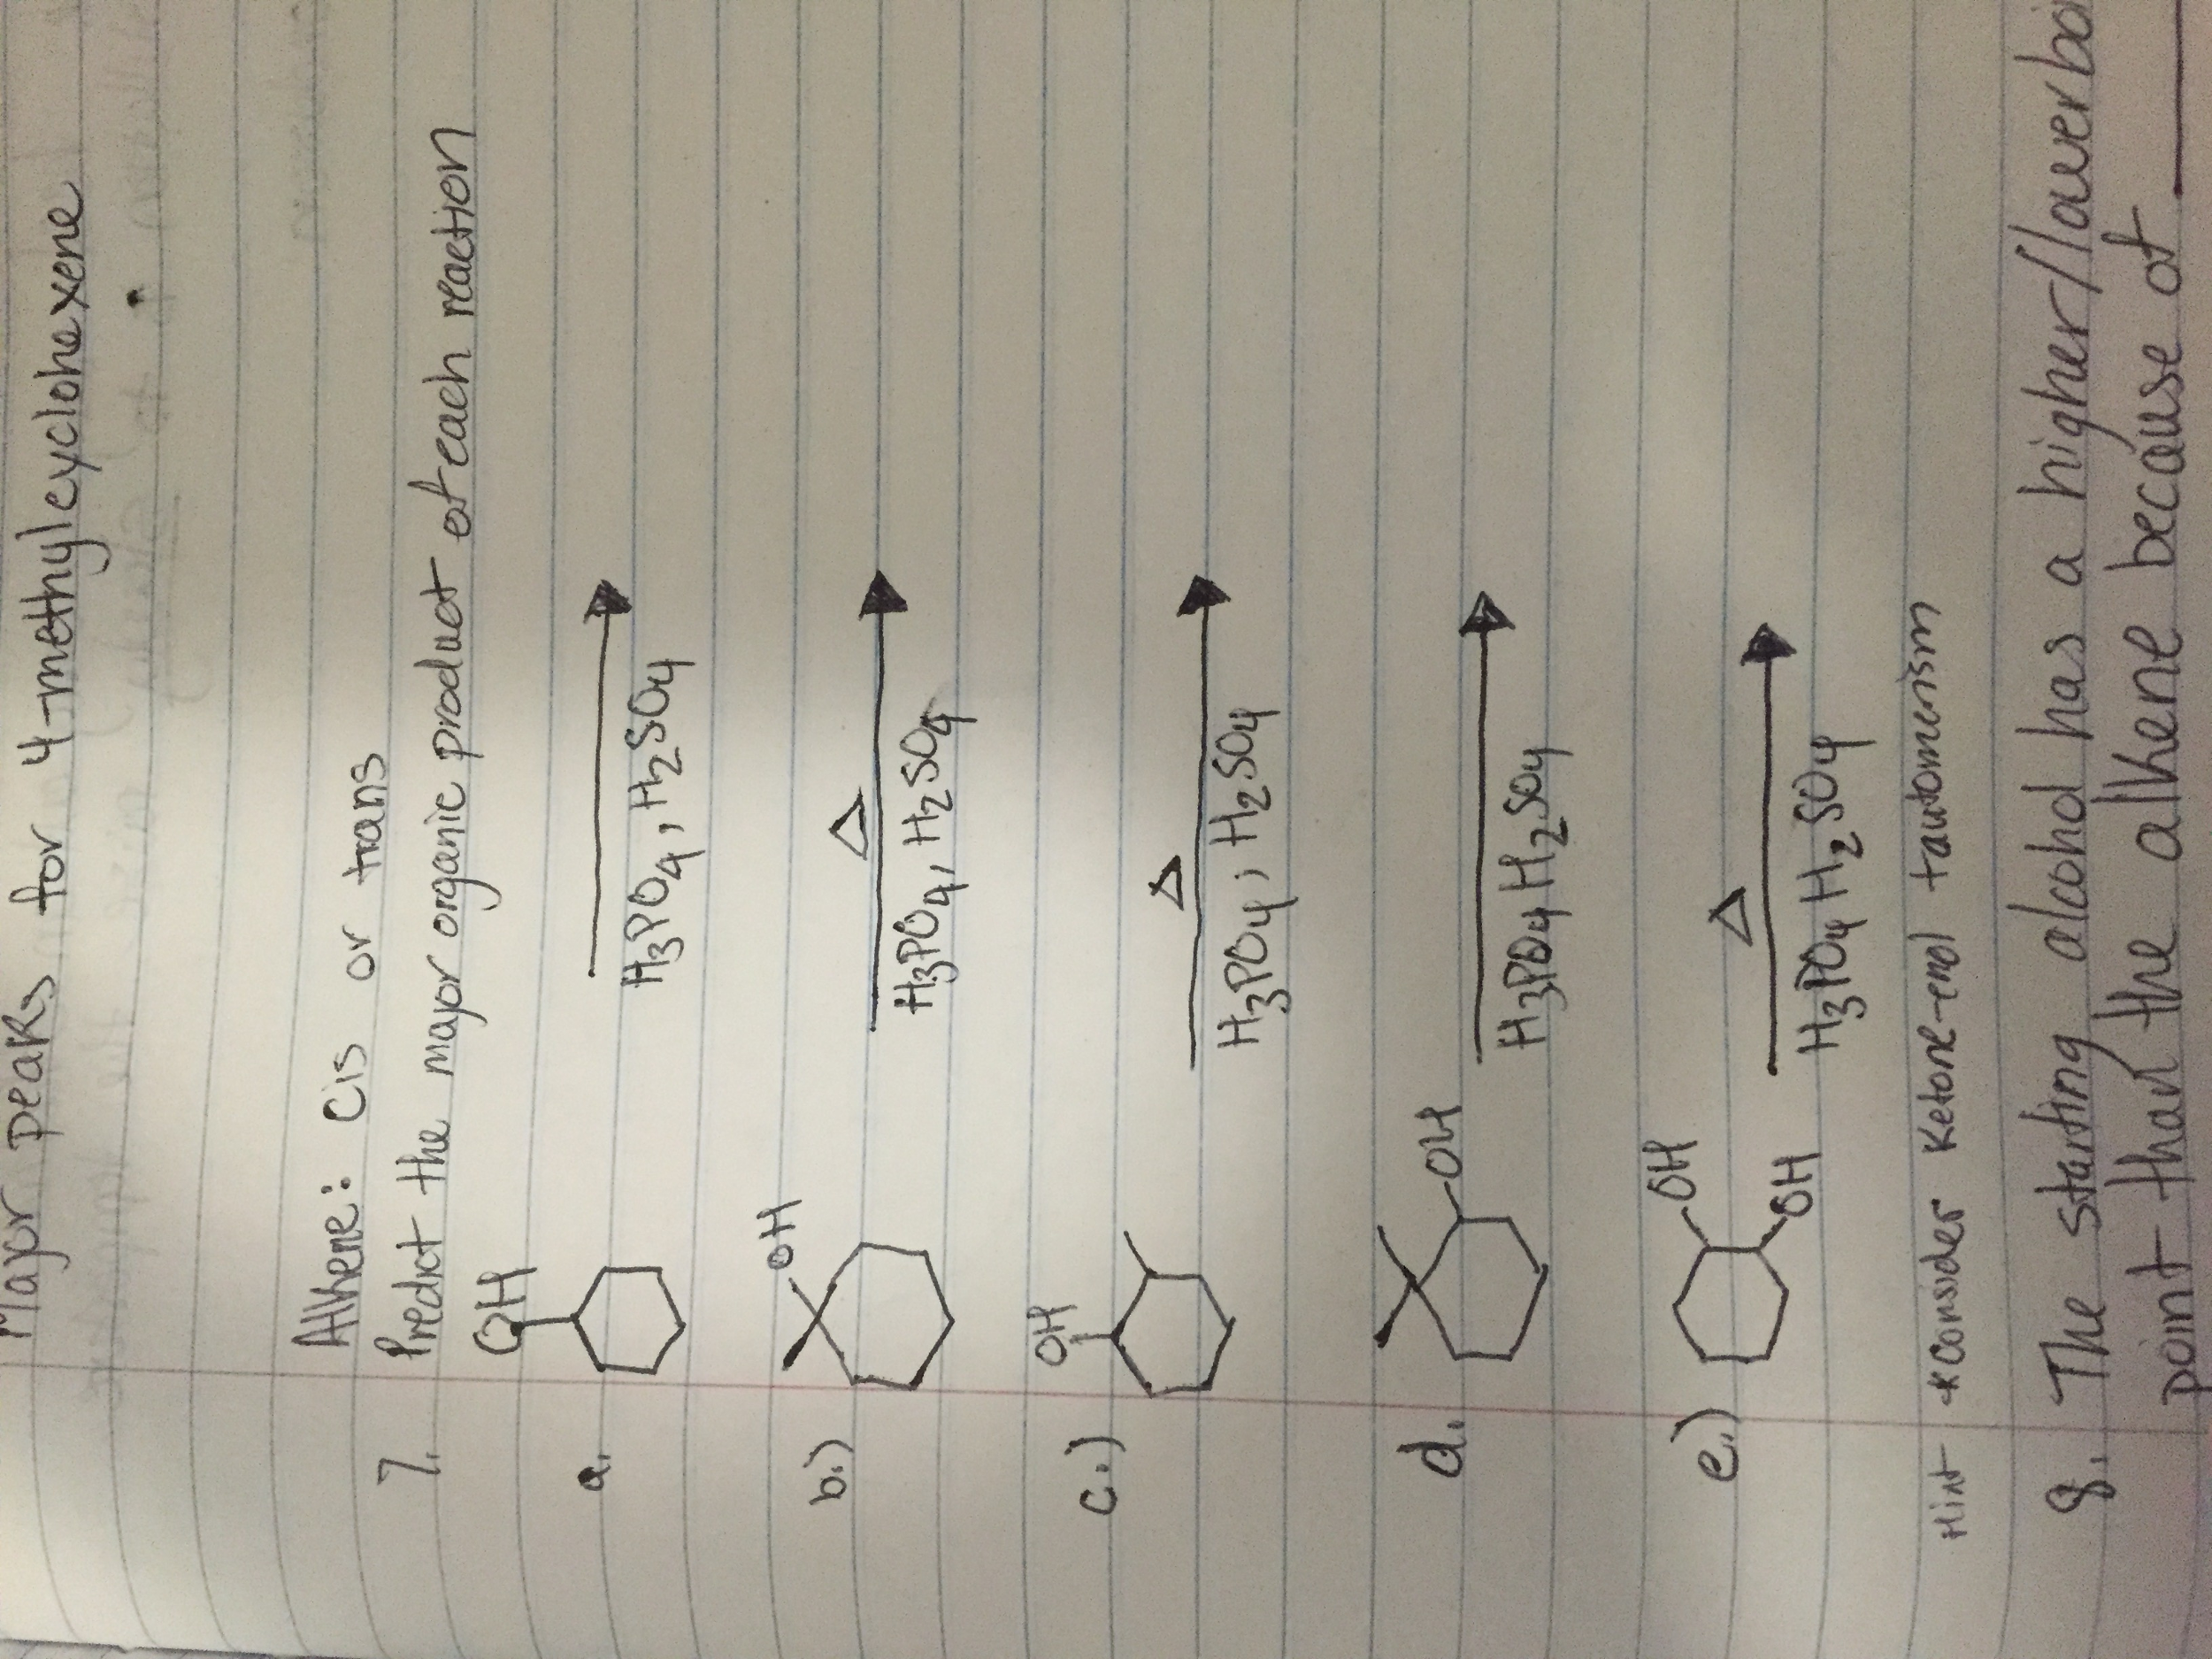 Major peaks for 4-methylcyclohexene
Alkene: Cis or trans
7. Predict the major organic product of each reaction
OH
a.
H3PO4, H2SO4
OH
b.)
Δ
H3PO4, H2SO4
OH
c.)
Δ
H3PO4, H2SO4
d.
OH
H3PO4 H2SO4
OH
e.)
OH
Δ
H3PO4 H2SO4
Hint *Consider Ketone-enol tautomerism
8. The starting alcohol has a higher/lower boi
point than the alkene because of